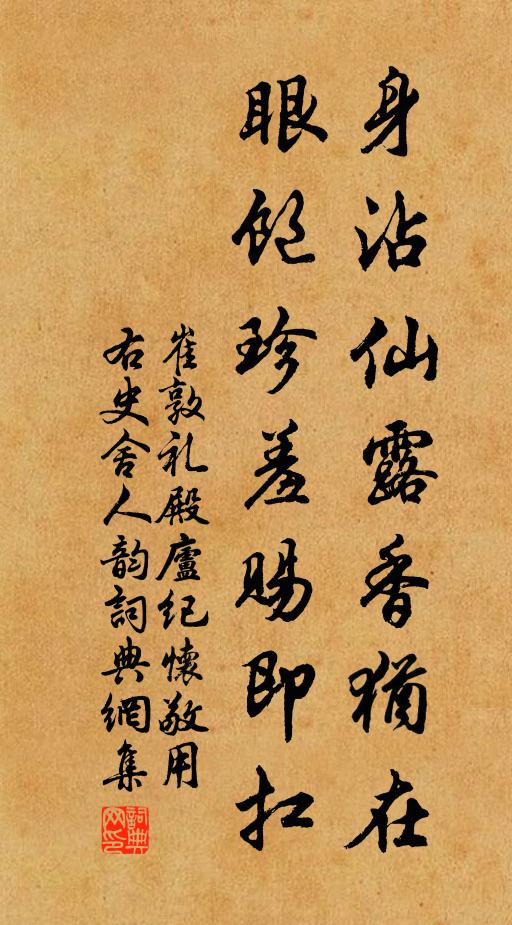 身沾仙露香猶在
眼飽珍羞賜即扛
崔敦礼殿廬纪懷敬用
右史舍人韵詞典網集
詞典
网印